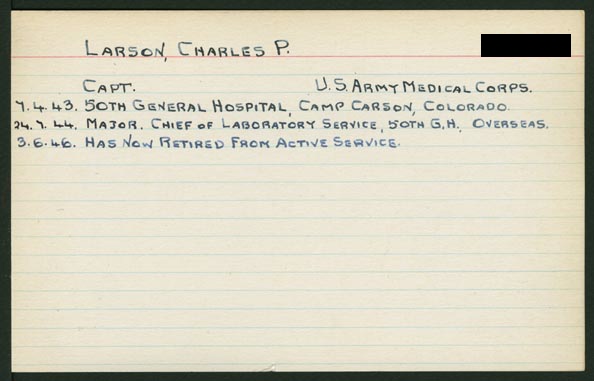 LARSON, CHARLES P.
CAPT. U.S. ARMY MEDICAL CORPS.
7.4.43. 50TH GENERAL HOSPITAL, CAMP CARSON, COLORADO.
24.7.44. MAJOR. CHIEF OF LABORATORY SERVICE, 50TH G.H. OVERSEAS.
3.6.46. HAS NOW RETIRED FROM ACTIVE SERVICE.